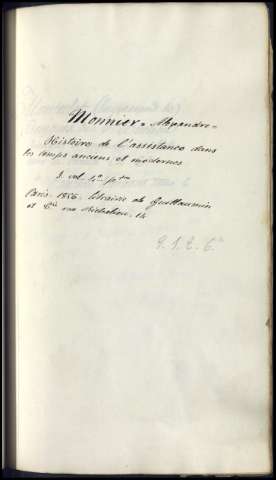 Monnier = Alexandre =
Histoires de l'assistance dans
les temps anciens et modernes
1. vol 4º
Paris. 1856. librairie de Guillaumin
et Cie rue Richelieu. 14